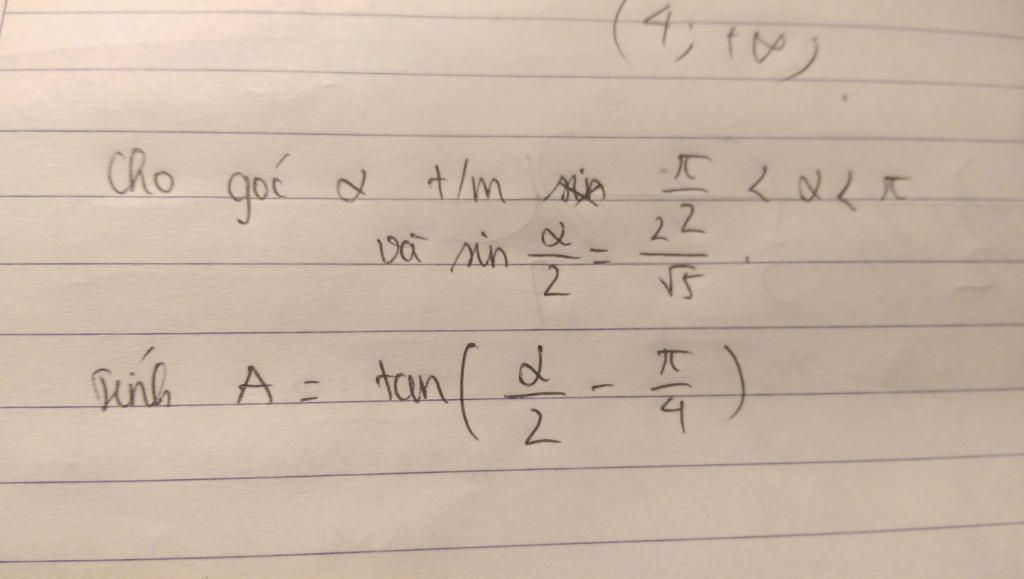 (4; +∞)
Cho góc α t/m sin π/2 < α < π
và sin α/2 = 2/√5.
Tính A = tan(α/2 - π/4)